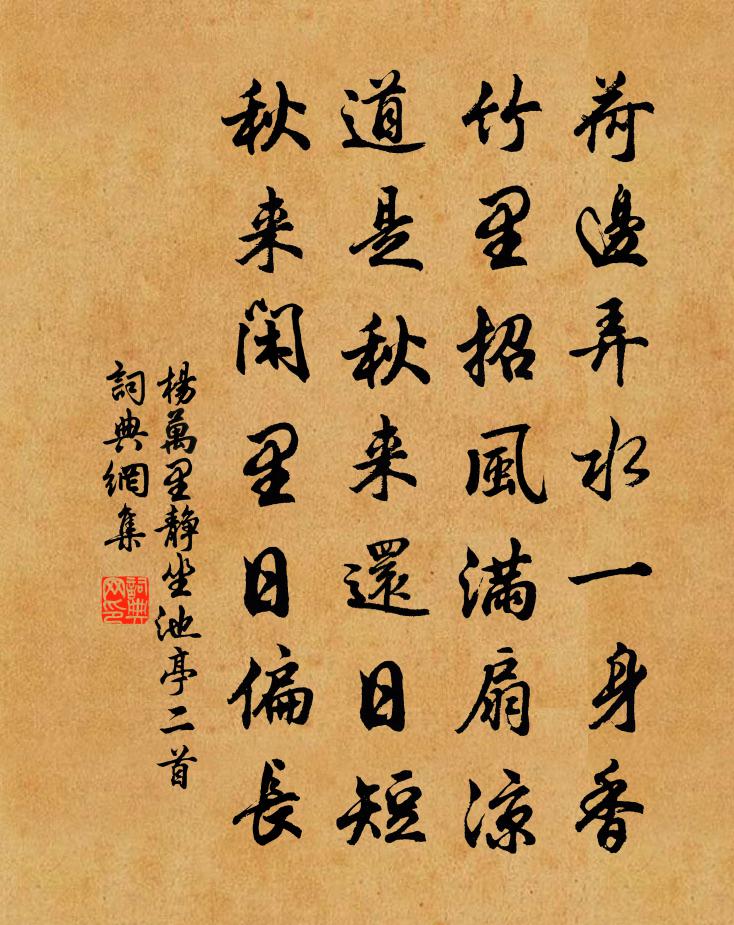 荷邊弄水一身香
竹里招風満扇凉
道是秋来還日短
秋来閑里日偏長
楊萬里靜坐池亭二首
詞典網集
詞典网印